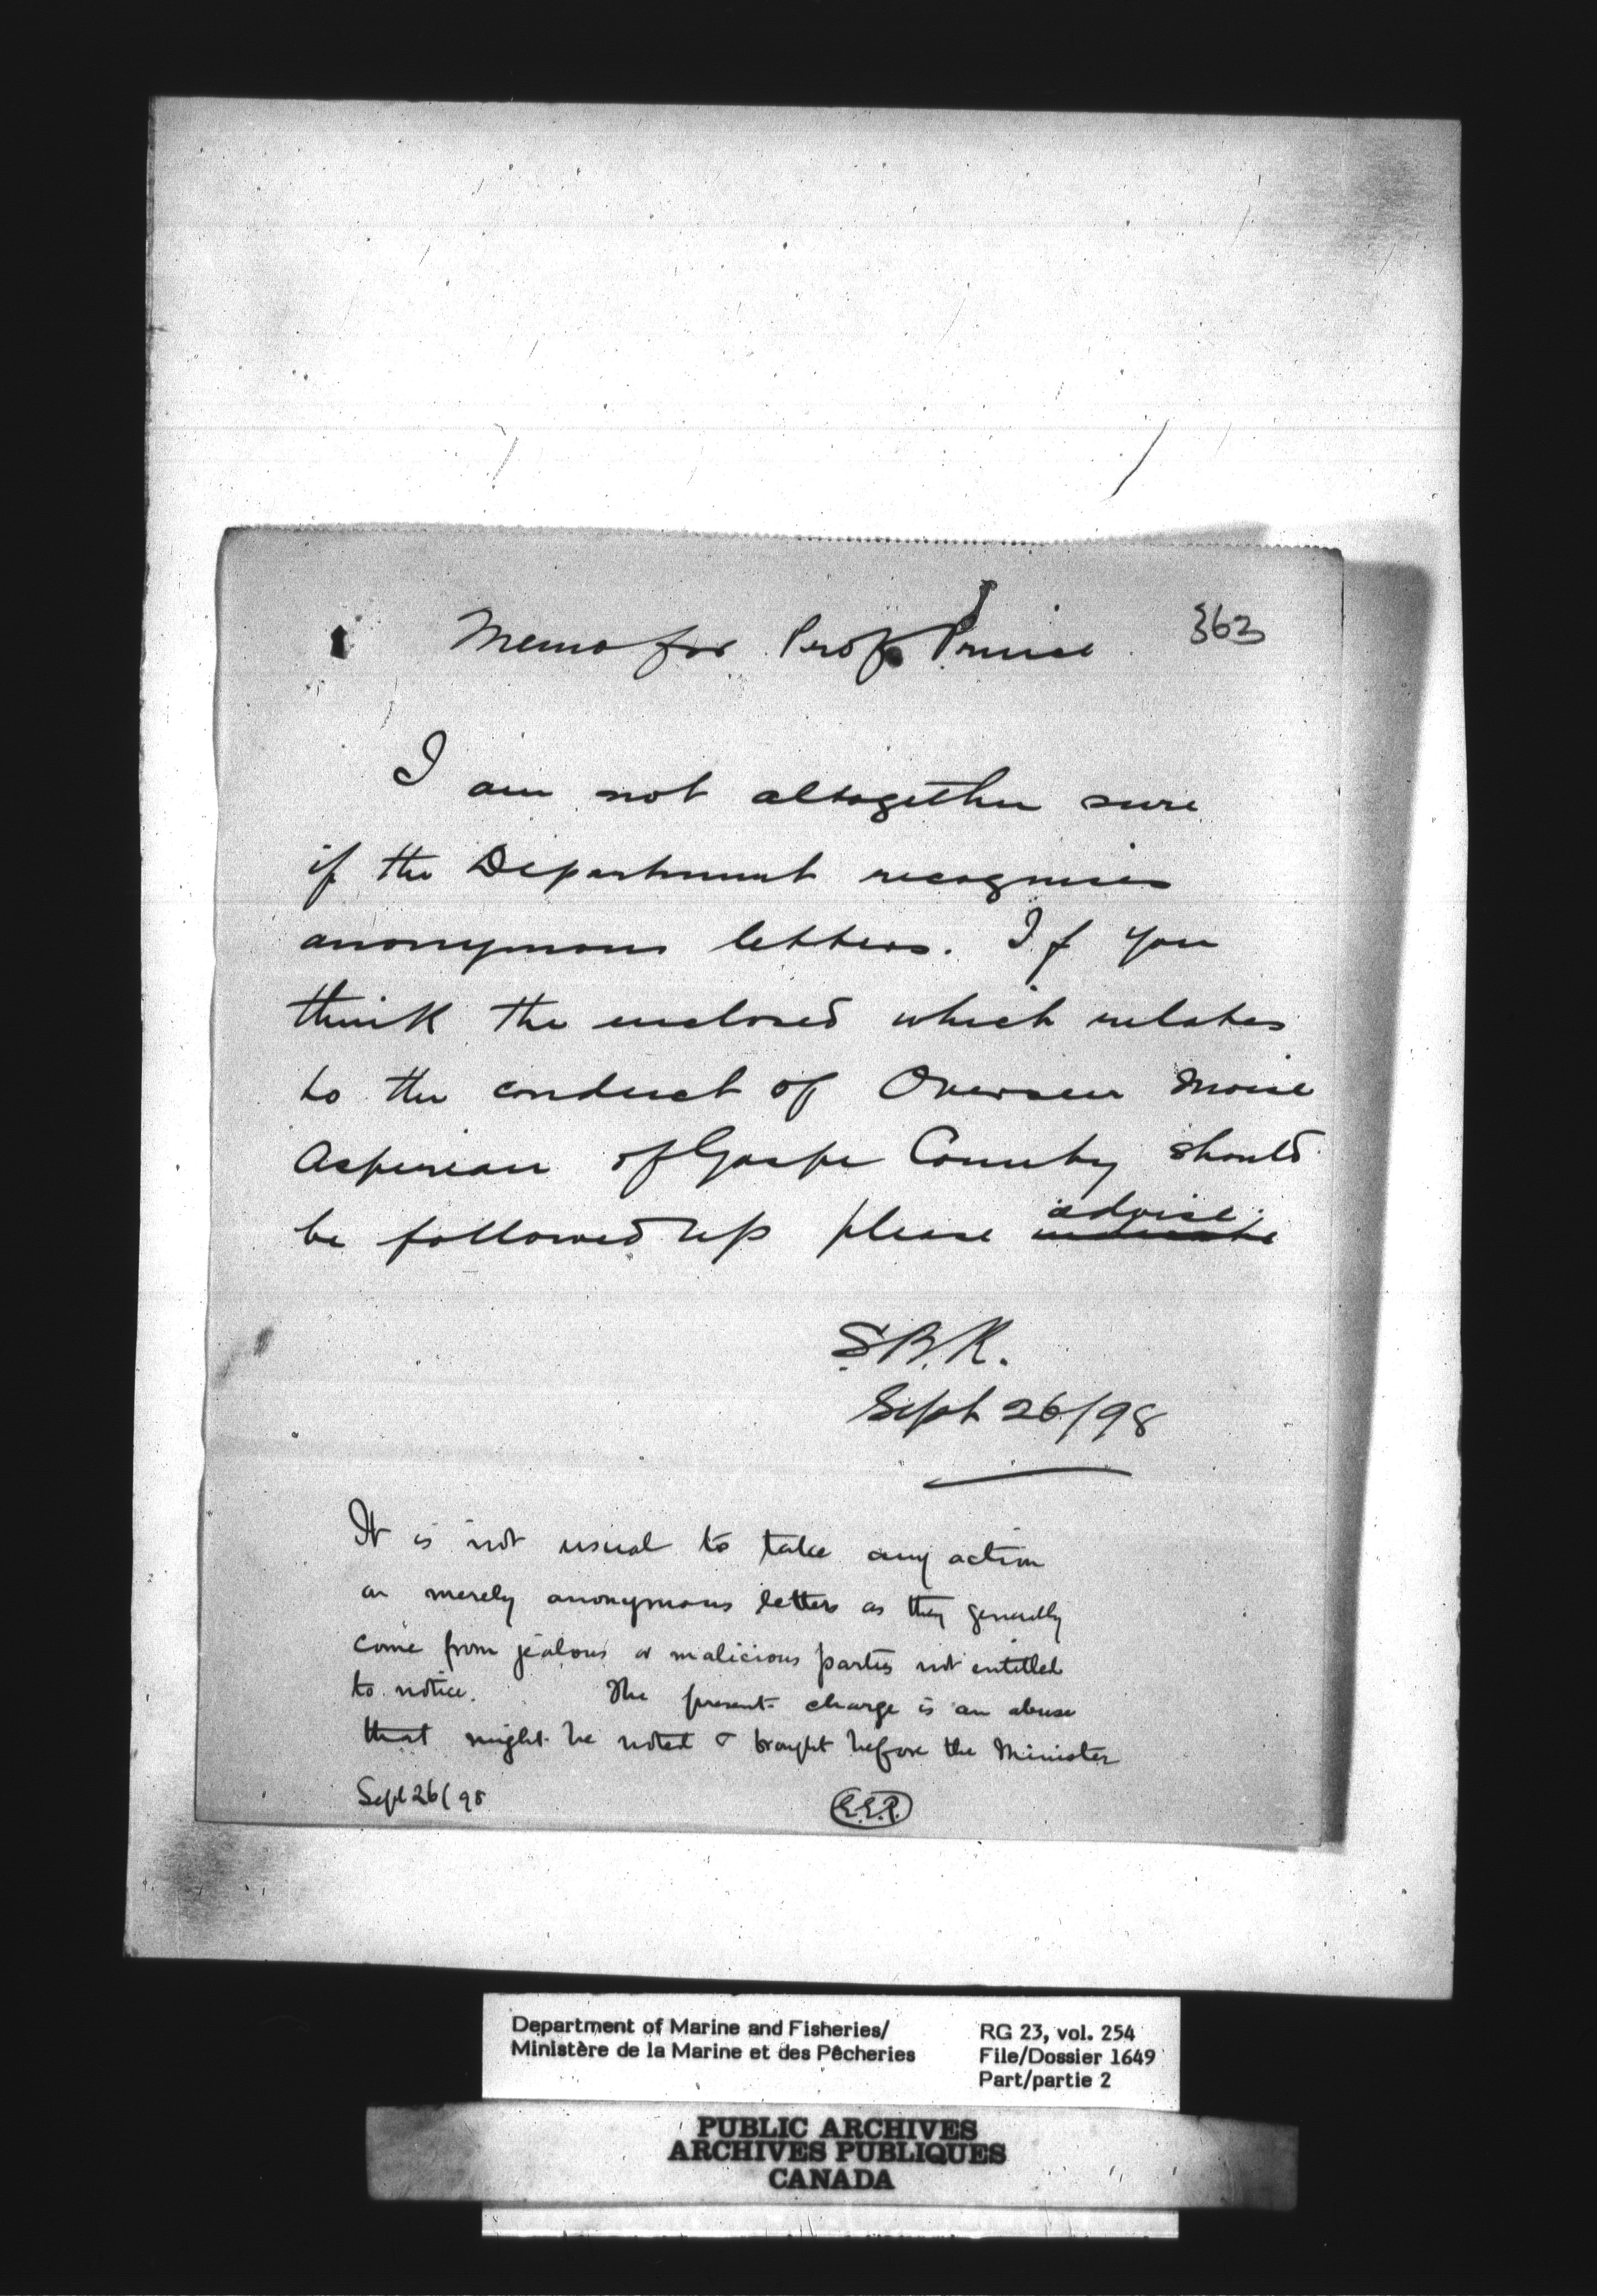 363
Memo for Prof Prince
I am not altogether sure
if the Department recognises
anonymous letters. If you
think the enclosed which relates
to the conduct of Overseer Moise
of Gaspe County should
be followed up please advise.
S.B.K.
Sept 26/98
It is not usual to take any action
on merely anonymous letters as they generally
come from jealous or malicious parties not entitled
to notice. The present charge is an abuse
that might be noted & brought before the Minister
Sept 26/98
E.E.P.
Department of Marine and Fisheries/
Ministère de la Marine et des Pêcheries
RG 23, vol. 254
File/Dossier 1649
Part/partie 2
PUBLIC ARCHIVES
ARCHIVES PUBLIQUES
CANADA